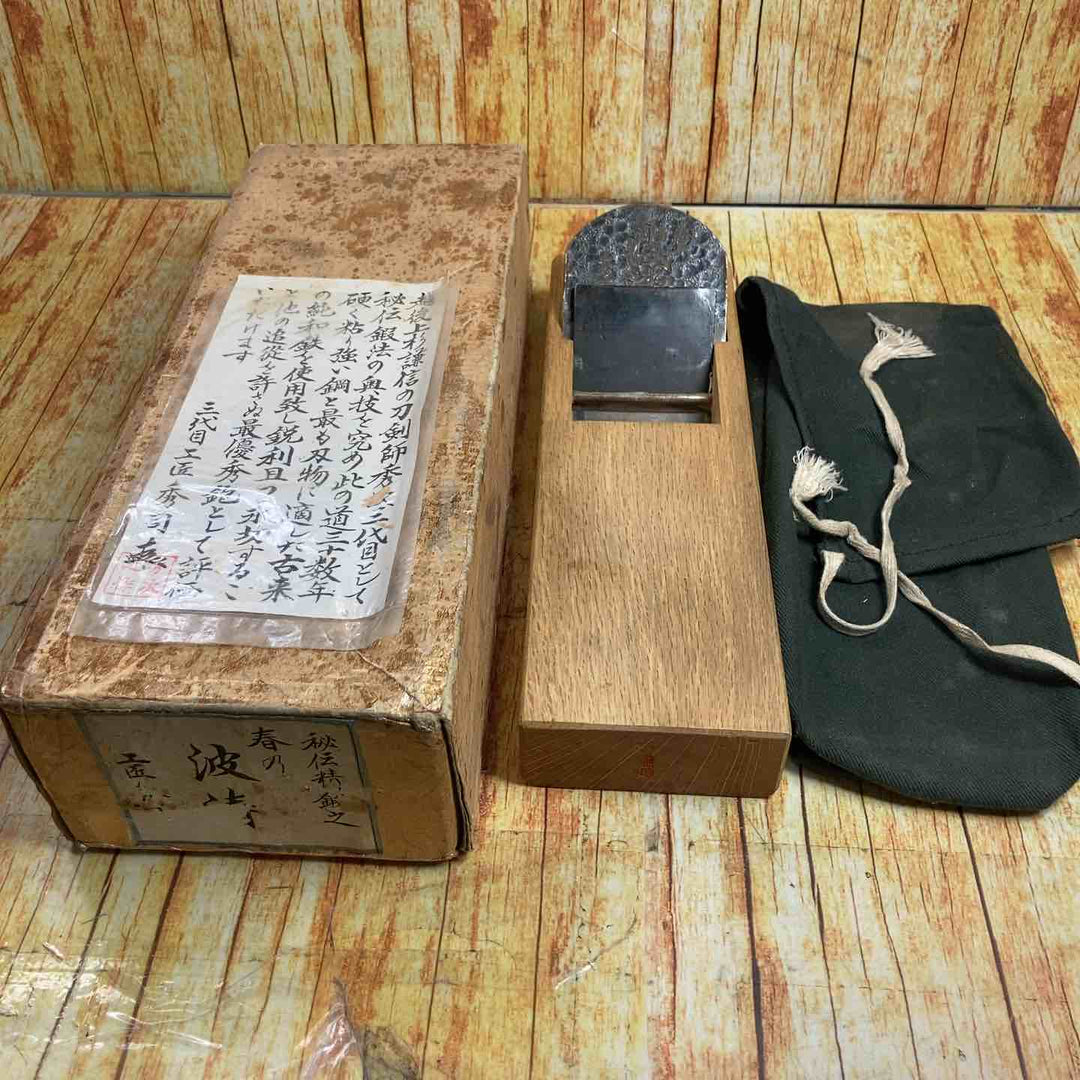 越後上杉謙信の刀剣師秀﹅三代目として
秘伝鍛法の奥技を究め此の道三十数年
硬く粘り強い鋼と最も刃物に適した古来
の純和鉄を使用致し鋭利且つ永切するこ
と他の追従を許さぬ最優秀鉋として評価
いただけます
三代目 工匠 秀司
秘伝精鍛之
春の
波
工匠